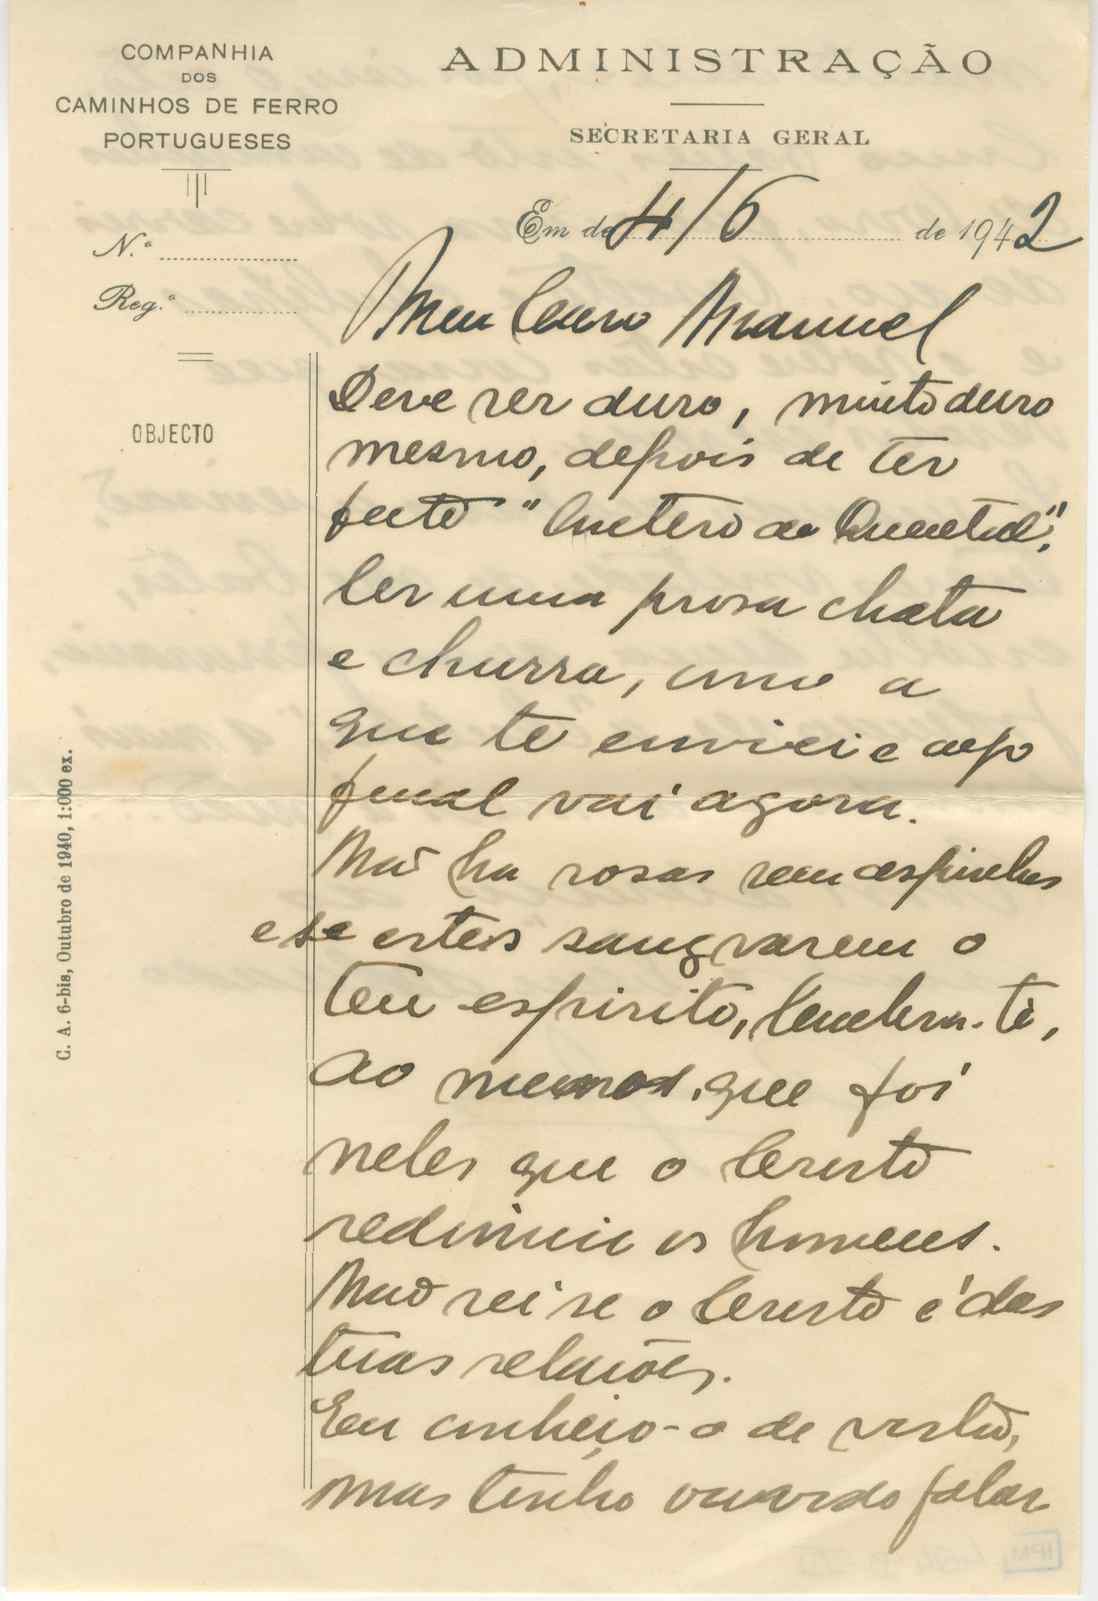 COMPANHIA
DOS
CAMINHOS DE FERRO
PORTUGUESES
ADMINISTRAÇÃO
SECRETARIA GERAL
Em de 4/6 de 1942
N.º
Reg.º
OBJECTO
Meu Caro Manuel
Deve ser duro, muito duro
mesmo, depois de ter
feito "Antero de Quental",
ler uma prosa chata
e churra, como a
que te enviei e cujo
final vai agora.
Não ha rosas sem espinhos
e se estes sangrarem o
teu espirito, lembra-te,
ao menos, que foi
neles que o Cristo
redimiu os homens.
Não sei se o Cristo é das
tuas relações.
Eu conheço-o de vista,
mas tenho ouvido falar
C. A. 6-bis, Outubro de 1940, 1:000 ex.